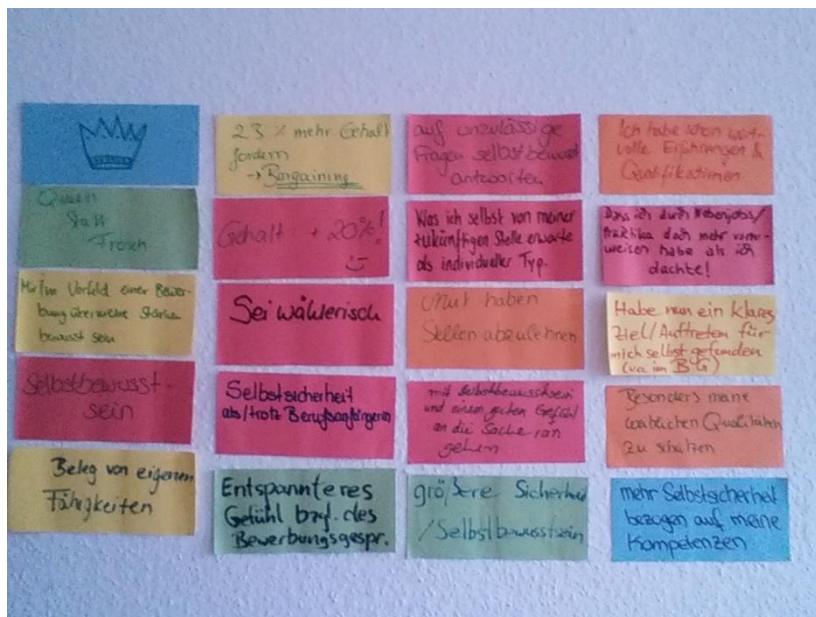 Queen
statt
Frosch
Mir im Vorfeld einer Bewer-
bung über meine Stärken
bewusst sein
Selbstbewusst-
sein
Beleg von eigenen
Fähigkeiten
23 % mehr Gehalt
fordern
→ Bargaining
Gehalt: + 20%!
Sei wählerisch
Selbstsicherheit
als/trotz Berufsanfängerin
Entspannteres
Gefühl bzgl. des
Bewerbungsgespr.
auf unzulässige
Fragen selbstbewusst
antworten
Was ich selbst von meiner
zukünftigen Stelle erwarte
als individueller Typ.
Mut haben
Stellen abzulehnen
mit Selbstbewusstsein
und einem guten Gefühl
an die Sache ran
gehen
größere Sicherheit
/Selbstbewusstsein
Ich habe schon wert-
volle Erfahrungen &
Qualifikationen
Dass ich durch Nebenjobs/
Praktika doch mehr vorzu-
weisen habe als ich
dachte!
Habe nun ein klares
Ziel/Auftreten für
mich selbst gefunden
(va im BG)
Besonders meine
weiblichen Qualitäten
zu schätzen
mehr Selbstsicherheit
bezogen auf meine
Kompetenzen